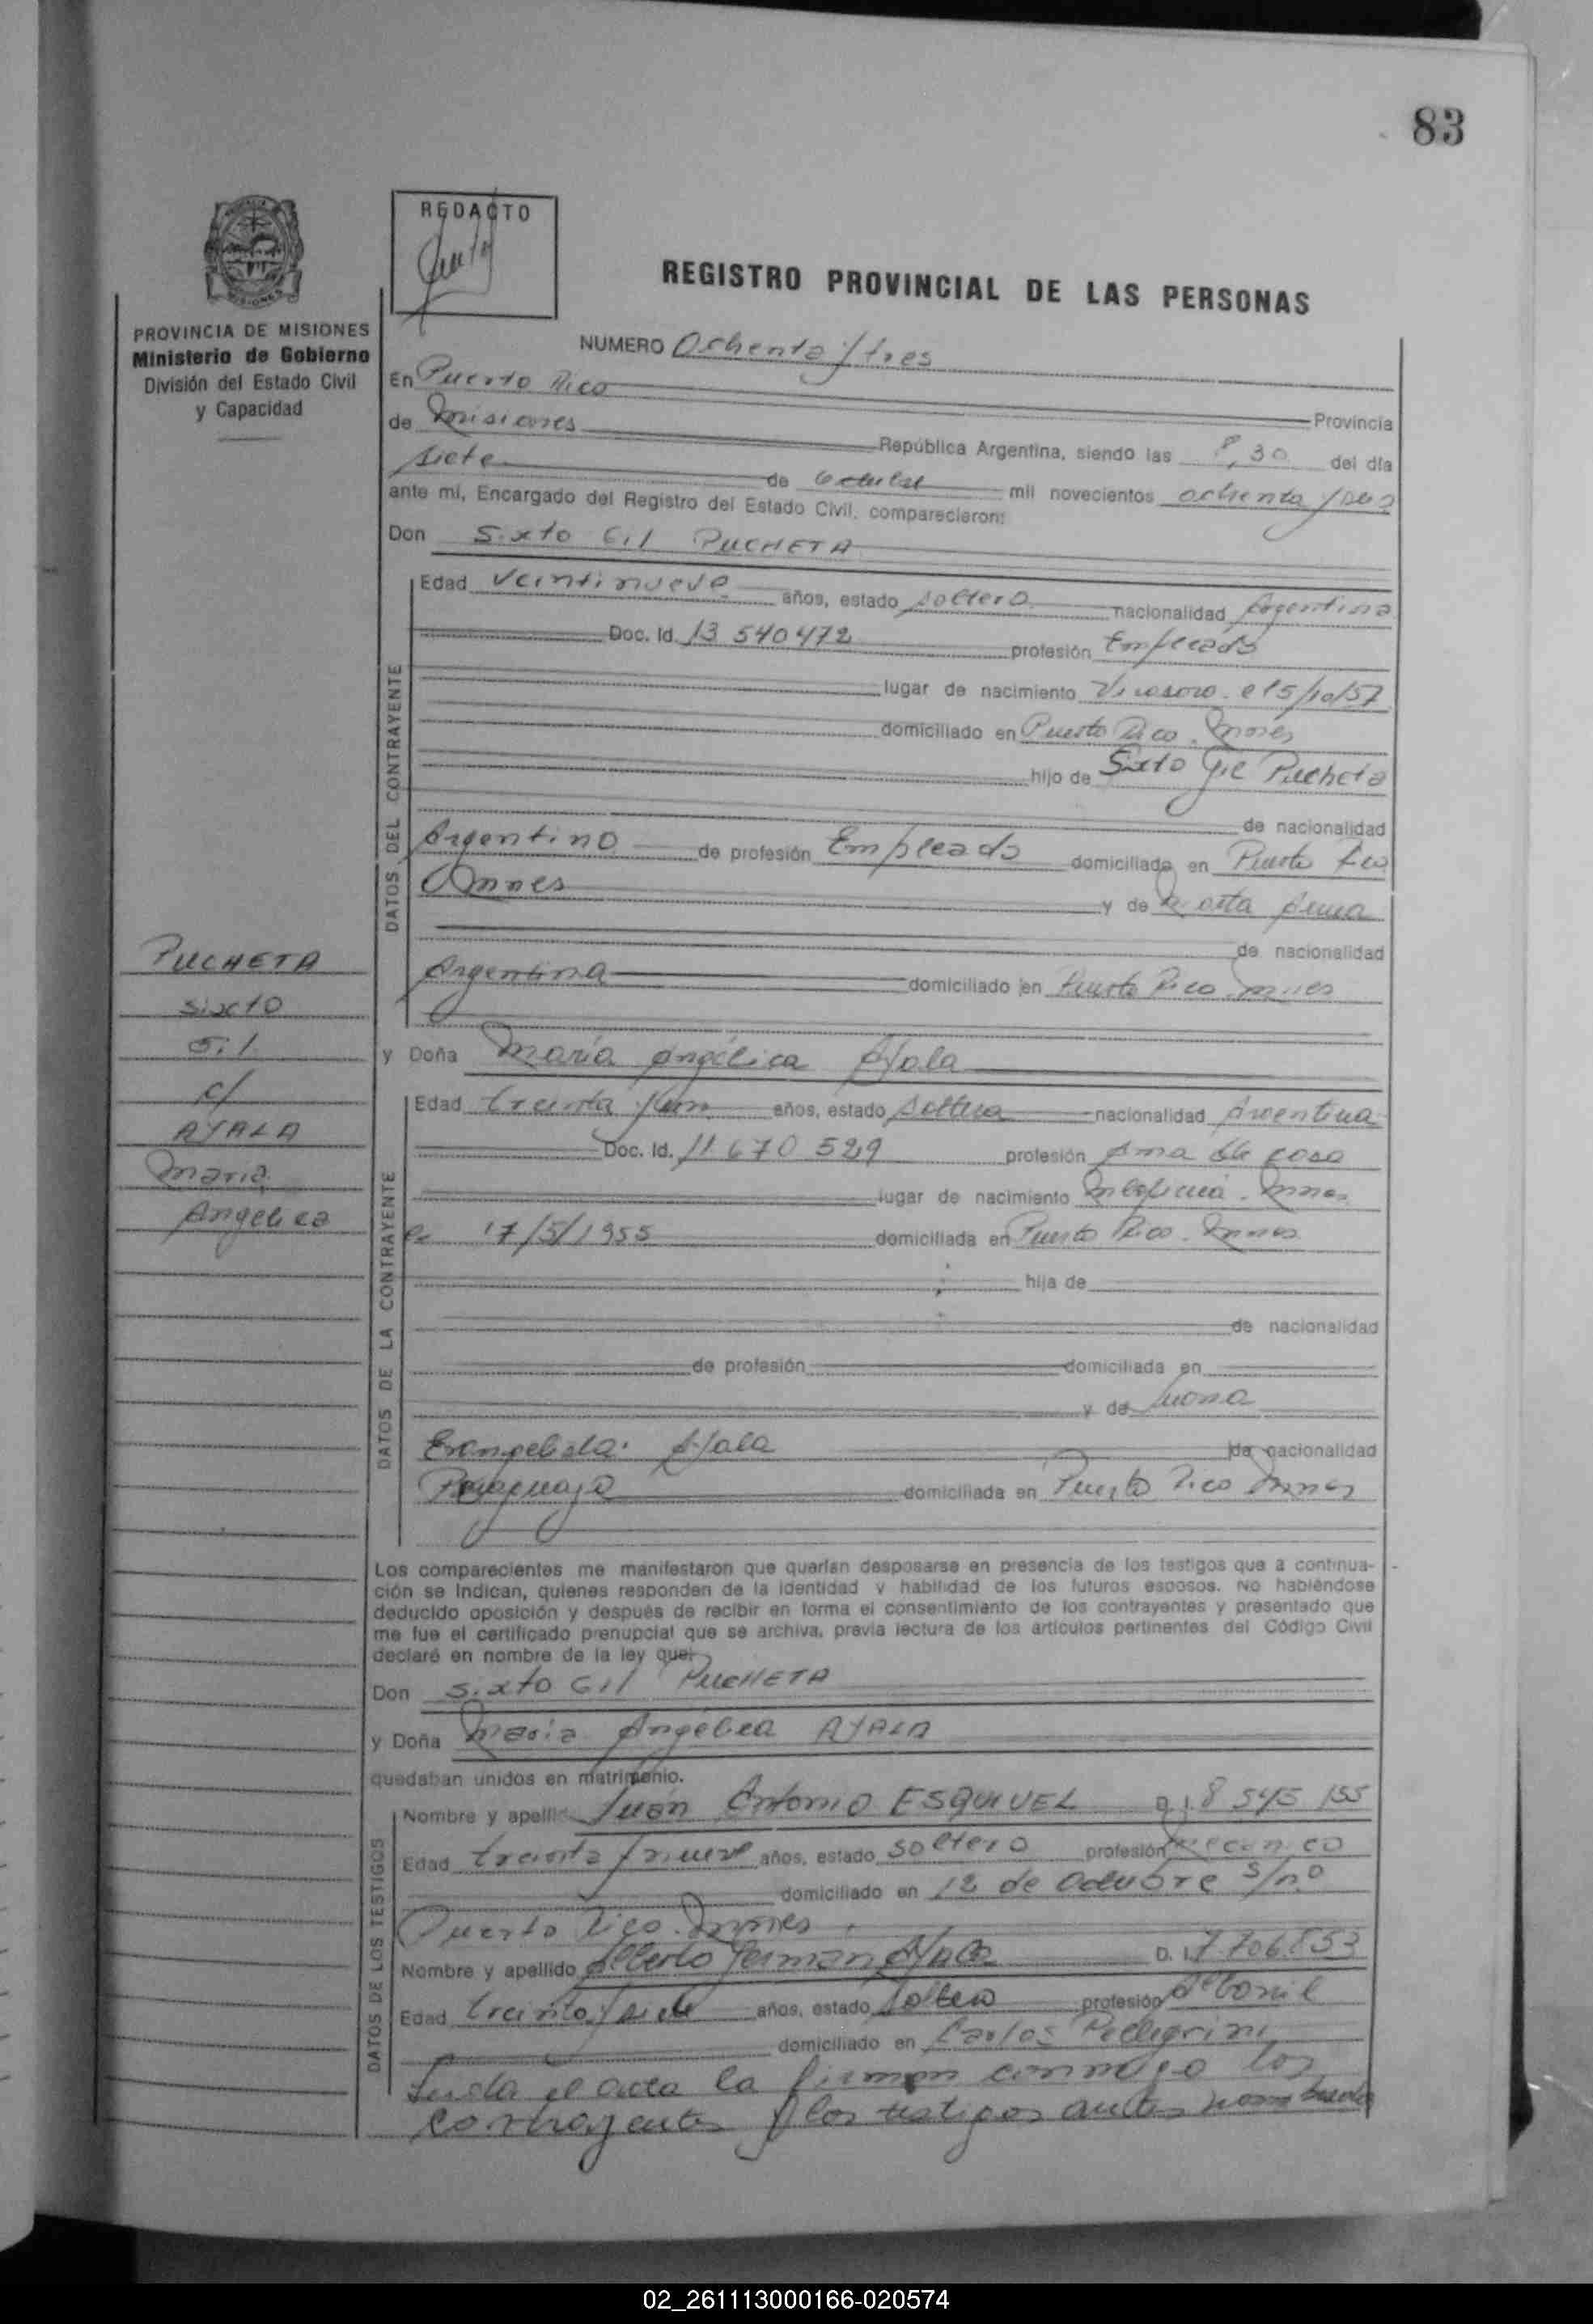 83
REDACTO
REGISTRO PROVINCIAL DE LAS PERSONAS
PROVINCIA DE MISIONES
Ministerio de Gobierno
División del Estado Civil
y Capacidad
NUMERO Ochenta y tres
En Puerto Rico
Provincia
de Misiones República Argentina, siendo las 8,30 del día
siete de Octubre mil novecientos ochenta y
ante mi, Encargado del Registro del Estado Civil, comparecieron:
Don Sixto Gil PUCHETA
Edad veintinueve años, estado soltero nacionalidad Argentina
Doc. Id. 13 540472 profesión Empleado
lugar de nacimiento Virasoro el 5/10/57
domiciliado en Puerto Rico. Mnes
hijo de Sixto Gil Pucheta
de nacionalidad
Argentino de profesión Empleado domiciliada en Puerto Rico
Mnes y de
de nacionalidad
Argentina domiciliado en Puerto Rico Mnes
y Doña María Angélica Ayala
Edad treinta y un años, estado soltera nacionalidad Argentina
Doc. Id. 11 670 529 profesión Ama de casa
lugar de nacimiento Mnes
el 17/5/1955 domiciliada en Puerto Rico. Mnes
hija de
de nacionalidad
de profesión domiciliada en
y de Juana
Evangelista Ayala de nacionalidad
Paraguaya domiciliada en Puerto Rico Mnes
PUCHETA
Sixto
Gil
c/
AYALA
Maria
Angelica
DATOS DEL CONTRAYENTE
DATOS DE LA CONTRAYENTE
Los comparecientes me manifestaron que querían desposarse en presencia de los testigos que a continua-
ción se indican, quienes responden de la identidad y habilidad de los futuros esposos. No habiéndose
deducido oposición y después de recibir en forma el consentimiento de los contrayentes y presentado que
me fue el certificado prenupcial que se archiva, previa lectura de los artículos pertinentes del Código Civil
declaré en nombre de la ley que:
Don Sixto Gil PUCHETA
y Doña Maria Angélica AYALA
quedaban unidos en matrimonio.
DATOS DE LOS TESTIGOS
Nombre y apellido Juan Antonio ESQUIVEL D. I. 8 545 155
Edad treinta y nueve años, estado soltero profesión Mecanico
domiciliado en 12 de Octubre s/nº
Puerto Rico. Mnes
Nombre y apellido Alberto Germán Ayala D. I. 7.706.853
Edad treinta y siete años, estado soltero profesión Albañil
domiciliado en Carlos Pellegrini
Leida el acta la firman conmigo los
contrayentes y los testigos antes nombrados
02_261113000166-020574